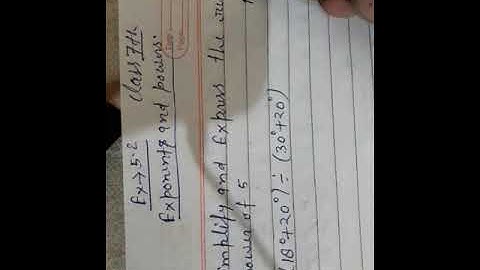 Ex→5.2 class 7th
Exponents and powers.
implify and Express the
ower of 5
(18°+20°) ÷ (30°+20°)